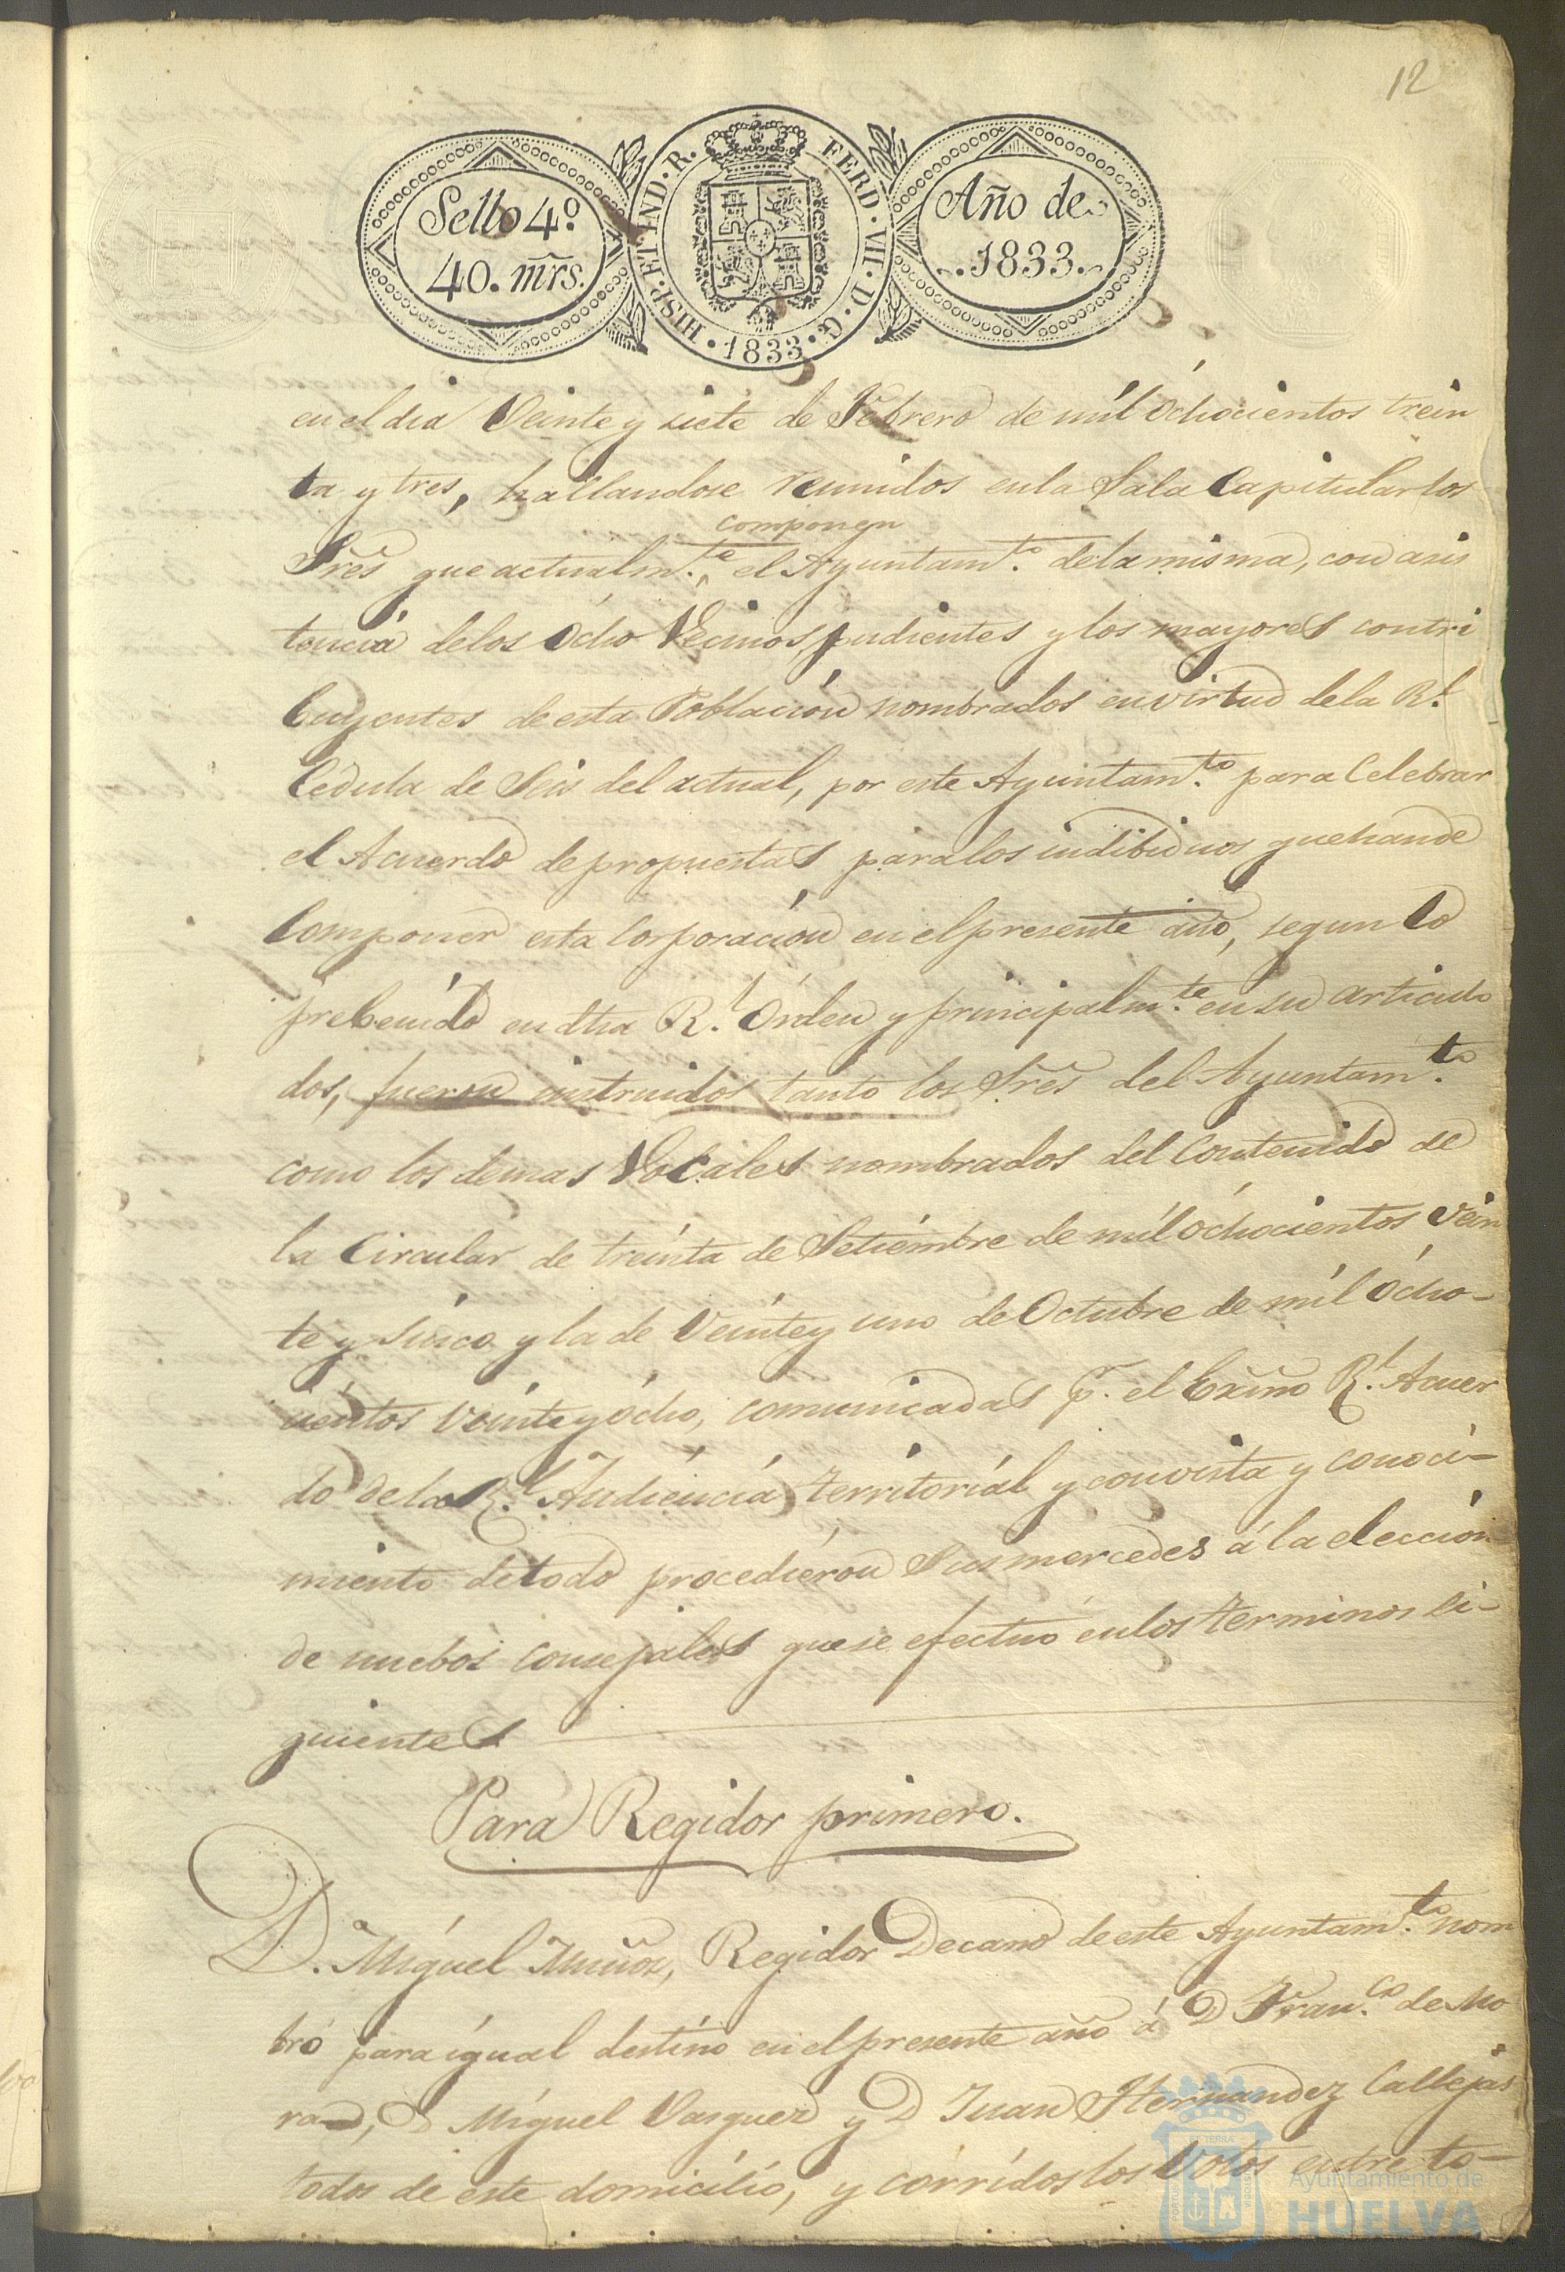 12
Sello 4º
40. mrs.
HISP. ET IND. R. FERD. VII. D. G. 1833.
Año de
1833.
en el dia Veinte y siete de Febrero de mil Ochocientos trein
ta y tres, hallandose reunidos en la Sala Capitular los
componen
Sres que actualm.te el Ayuntam.to de la misma, con asis
tencia de los Ocho Vecinos pudientes y los mayores contri
buyentes de esta Poblacion nombrados en virtud de la R.l
Cedula de Seis del actual, por este Ayuntam.to para Celebrar
el Acuerdo de propuestas para los indibiduos que han de
Componer esta Corporacion en el presente año, segun lo
prebenido en dha R.l Orden y principalm.te en su articulo
dos, fueron instruidos tanto los Sres del Ayuntam.to
como los demas Vocales nombrados del Contenido de
la Circular de treinta de Setiembre de mil ochocientos Vein
te y sinco y la de Veinte y uno de Octubre de mil Ocho-
cientos Veinte y ocho, comunicadas p.r el Exmo R.l Acuer
do de la R.l Audiencia territorial y con vista y conoci-
miento de todo procedieron Sus mercedes á la eleccion
de nuebos consejales que se efectuó en los terminos si-
guientes
Para Regidor primero.
D. Miguel Muñoz, Regidor Decano de este Ayuntam.to nom
bró para igual destino en el presente año á D Fran.co de Mo
ra, D Miguel Vasquez y D Juan Hernandez Callejas
todos de este domicilio, y corridos los Votos entre to-
Ayuntamiento de
HUELVA